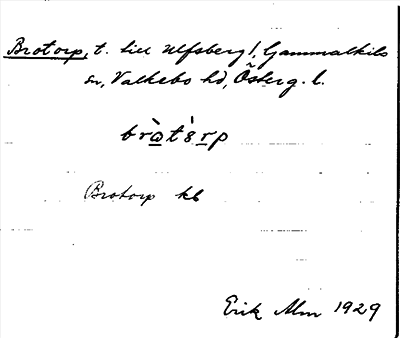 Brotorp, t. till Ulfsberg 1, Gammalkils
sn, Valkebo hd, Österg. l.
bròtórp
Brotorp kb
Erik Alm 1929